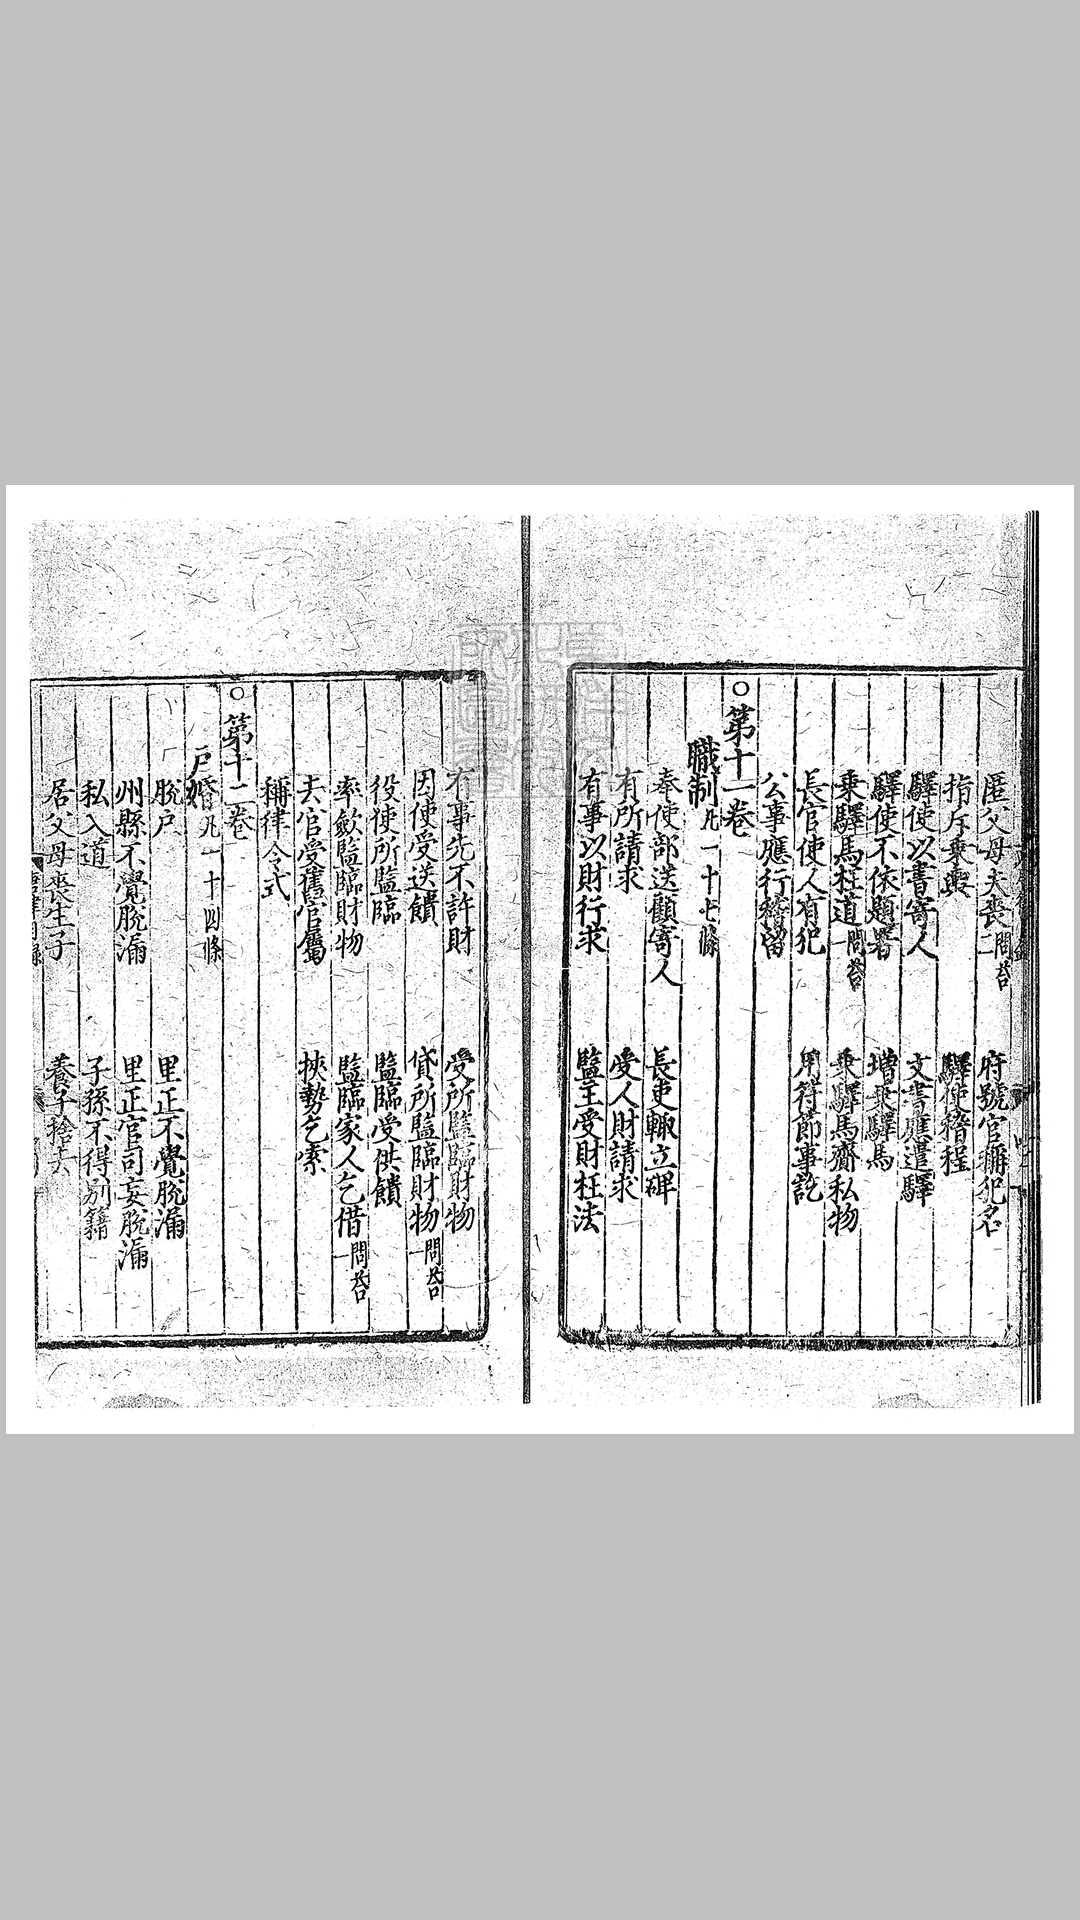 匿父母夫喪二問荅　府號官稱犯名
指斥乗輿　驛使稽程
驛使以書寄人　文書應遣驛
驛使不依題署　增乗驛馬
乗驛馬枉道一問荅　乗驛馬齎私物
長官使人有犯　用符節事訖
公事應行稽留
○第十一卷
職制凡一十七條
奉使部送顧寄人　長吏輙立碑
有所請求　受人財請求
有事以財行求　監主受財枉法
有事先不許財　受所監臨財物
因使受送饋　貸所監臨財物一問荅
役使所監臨　監臨受供饋
率斂監臨財物　監臨家人乞借一問荅
去官受舊官屬　挾勢乞索
稱律令式
○第十二卷
戶婚凡一十四條
脫户　里正不覺脫漏
州縣不覺脫漏　里正官司妄脫漏
私入道　子孫不得別籍
居父母喪生子　養子捨去